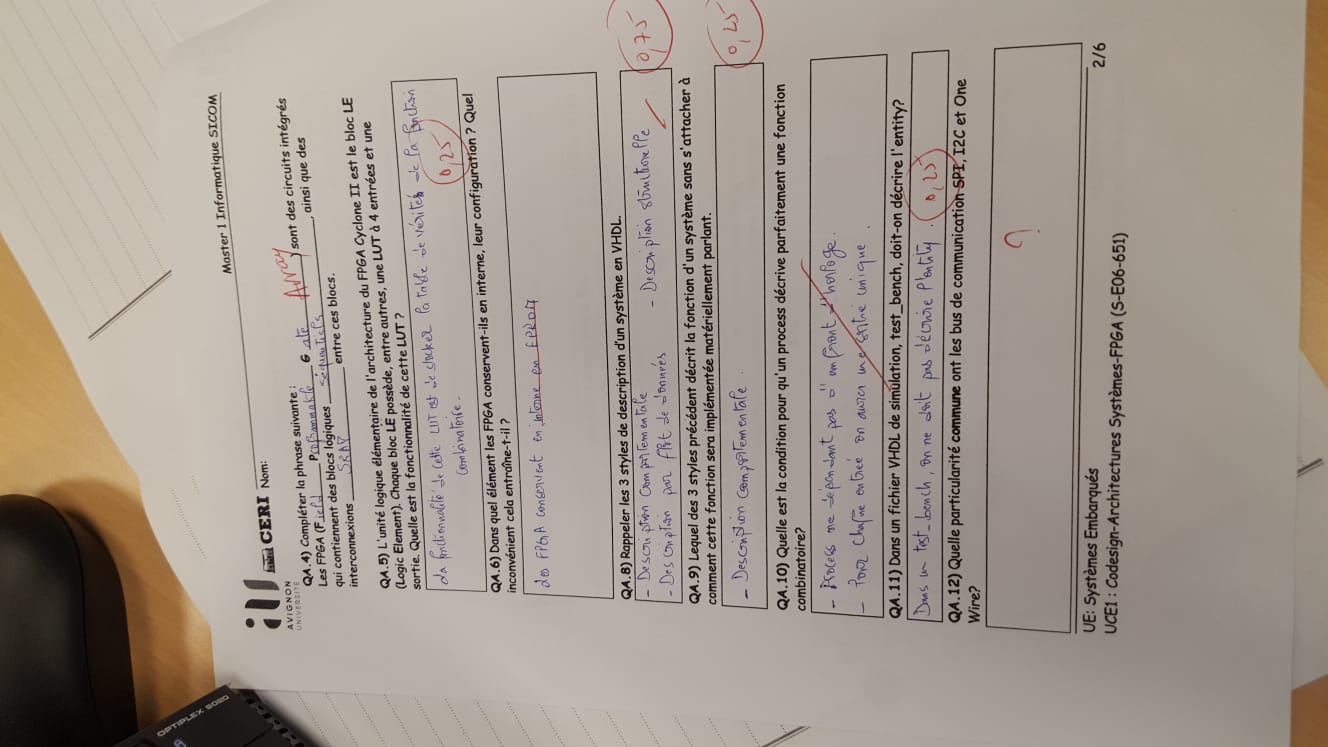 Master 1 Informatique SICOM
AVIGNON
UNIVERSITÉ
CERI Nom:
QA.4) Compléter la phrase suivante :
Les FPGA (Field Programmable Gate Array) sont des circuits intégrés
qui contiennent des blocs logiques séquentiels, ainsi que des
interconnexions SRAM entre ces blocs.
QA.5) L'unité logique élémentaire de l'architecture du FPGA Cyclone II est le bloc LE
(Logic Element). Chaque bloc LE possède, entre autres, une LUT à 4 entrées et une
sortie. Quelle est la fonctionnalité de cette LUT ?
La fonctionnalité de cette LUT est de stocker la table de vérités de la fonction
combinatoire.
0,25
QA.6) Dans quel élément les FPGA conservent-ils en interne, leur configuration ? Quel
inconvénient cela entraîne-t-il ?
Les FPGA conservent en interne en EPROM
QA.8) Rappeler les 3 styles de description d'un système en VHDL.
0,75
- Description comportementale
- Description par flot de données - Description structurelle
QA.9) Lequel des 3 styles précédent décrit la fonction d'un système sans s'attacher à
comment cette fonction sera implémentée matériellement parlant.
0,25
- Description comportementale.
QA.10) Quelle est la condition pour qu'un process décrive parfaitement une fonction
combinatoire?
- Process ne dépendant pas d'un front d'horloge.
- Pour chaque entrée on aura une sortie unique.
QA.11) Dans un fichier VHDL de simulation, test_bench, doit-on décrire l'entity?
Dans un test_bench, on ne doit pas décrire l'entity.
0,25
QA.12) Quelle particularité commune ont les bus de communication SPI, I2C et One
Wire?
?
UE: Systèmes Embarqués
UCE1 : Codesign-Architectures Systèmes-FPGA (S-E06-651)
2/6
OPTIPLEX 9020